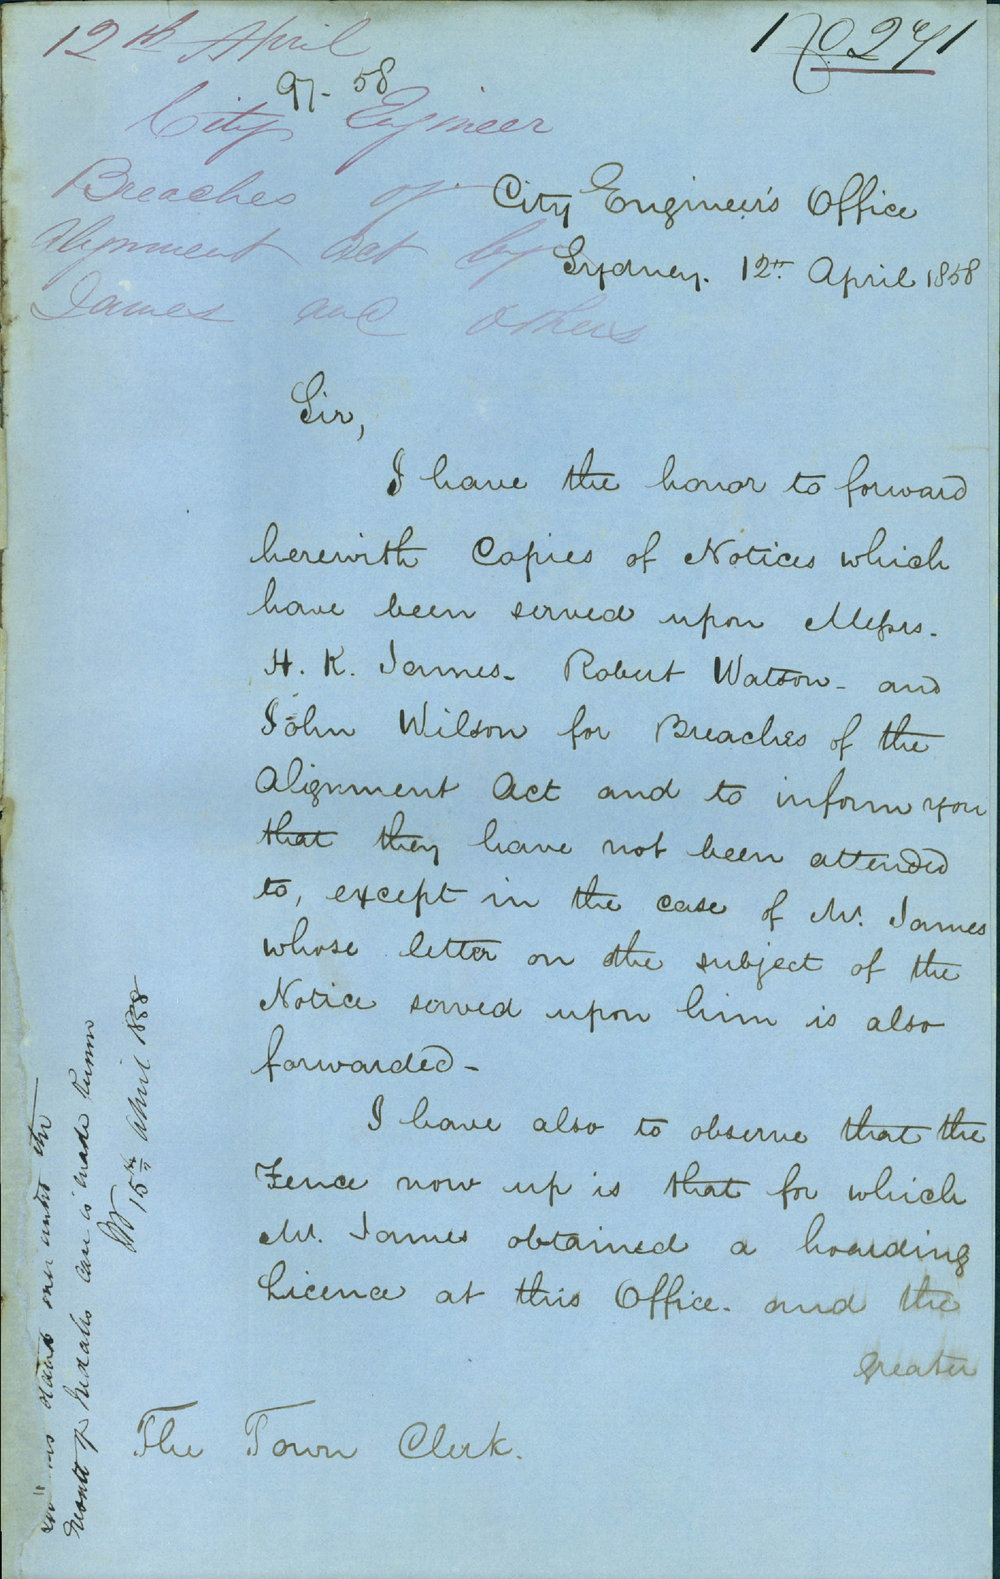 12th April
No 271
97-58
City Engineer
Breaches of
Alignment Act by
James and others
City Engineer's Office
Sydney. 12th April 1858
Sir,
I have the honor to forward
herewith Copies of Notices which
have been served upon Messrs.
H. K. James - Robert Watson - and
John Wilson for Breaches of the
Alignment Act and to inform you
that they have not been attended
to, except in the case of Mr. James
whose letter on the subject of the
Notice served upon him is also
forwarded -
I have also to observe that the
Fence now up is that for which
Mr. James obtained a hoarding
Licence at this Office. and the
greater
The Town Clerk.
stand over until the
result of case is made known
15th April 1858